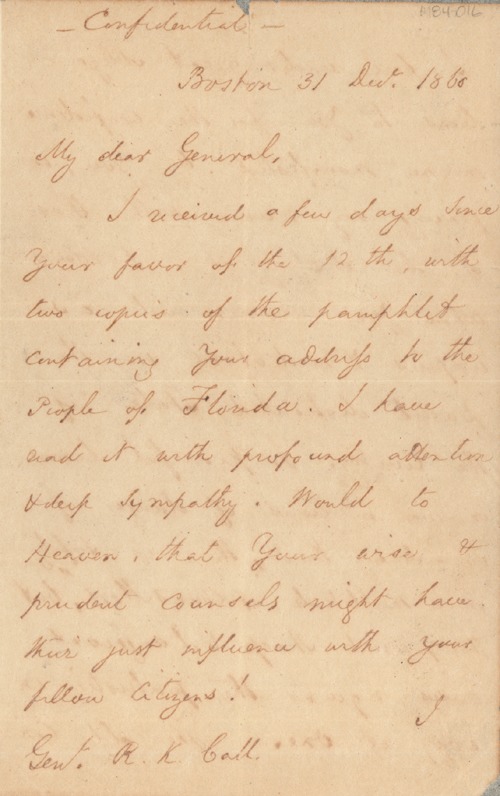 M84-016
– Confidential –
Boston 31 Decr. 1860
My dear General,
I received a few days since
your favor of the 12th, with
two copies of the pamphlet
containing your address to the
People of Florida. I have
read it with profound attention
& deep sympathy. Would to
Heaven, that your wise &
prudent counsels might have
their just influence with your
fellow citizens!
I
Genl. R. K. Call.